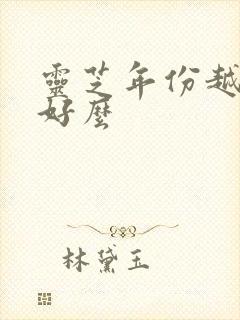 靈芝年份越
好麼
林黛玉